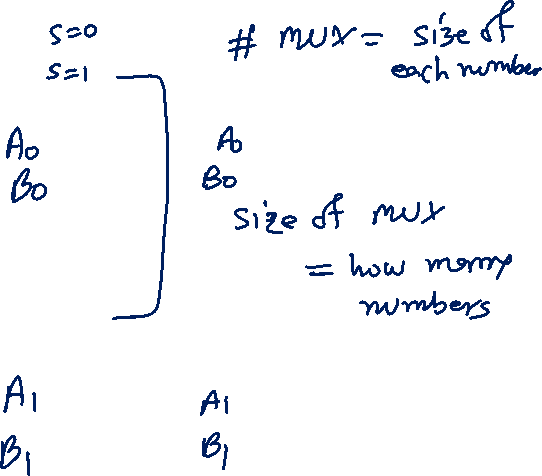 S=0
# MUX = size of
each number
S=1
A0
B0
A0
B0
size of MUX
= how many
numbers
A1
B1
A1
B1